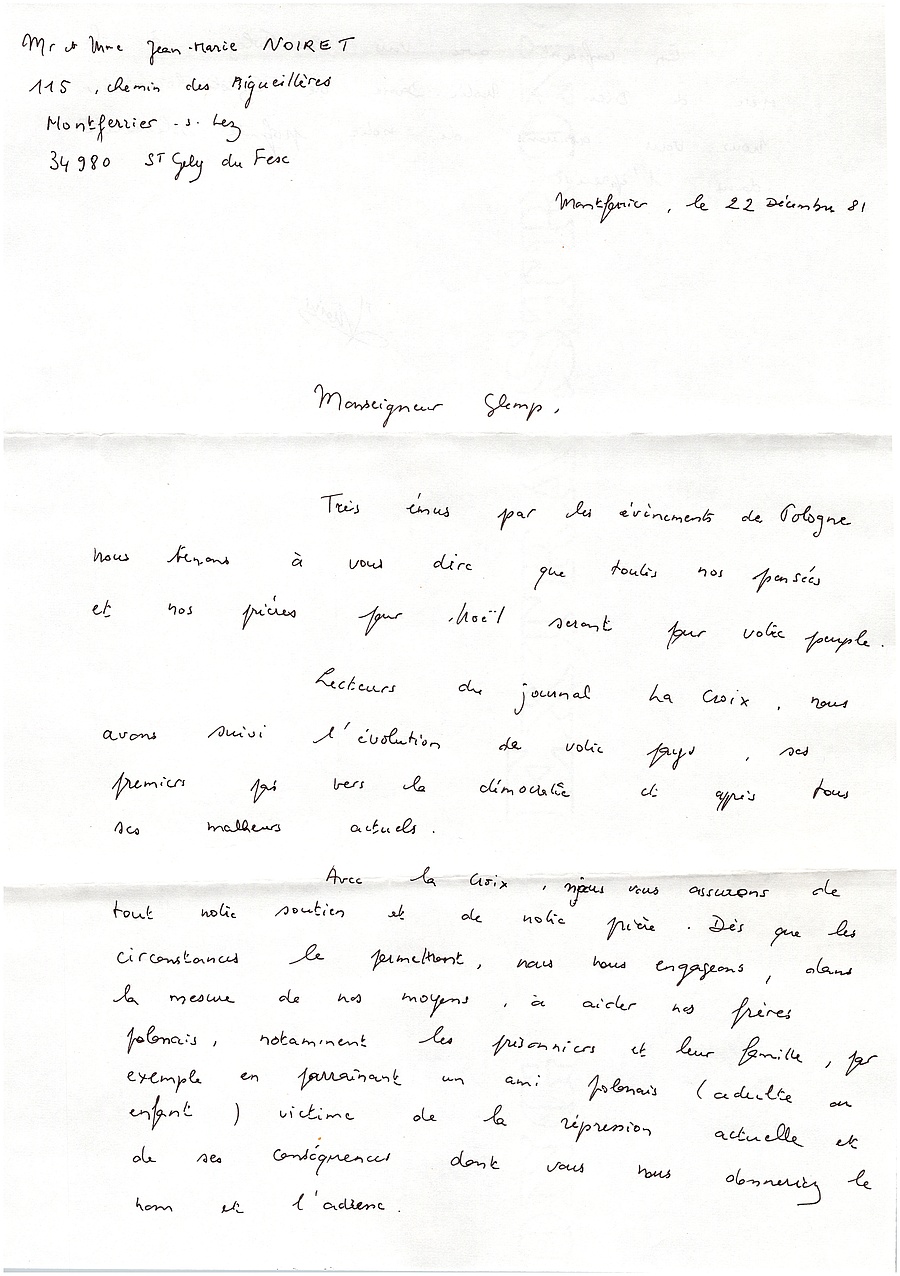 Mr et Mme Jean-Marie NOIRET
115, chemin des Aigueillères
Montferrier-s-Lez
34980 ST Gely du Fesc
Montferrier, le 22 Décembre 81
Monseigneur Glemp,
Très émus par les évènements de Pologne
nous tenons à vous dire que toutes nos pensées
et nos prières pour Noël seront pour votre peuple.
Lecteurs du journal La Croix, nous
avons suivi l'évolution de votre pays, ses
premiers pas vers la démocratie et après tous
ses malheurs actuels.
Avec la Croix, nous vous assurons de
tout notre soutien et de notre prière. Dès que les
circonstances le permettront, nous nous engageons, dans
la mesure de nos moyens, à aider nos frères
polonais, notamment les prisonniers et leur famille, par
exemple en parrainant un ami polonais (adulte ou
enfant) victime de la répression actuelle et
de ses conséquences dont vous nous donneriez le
nom et l'adresse.